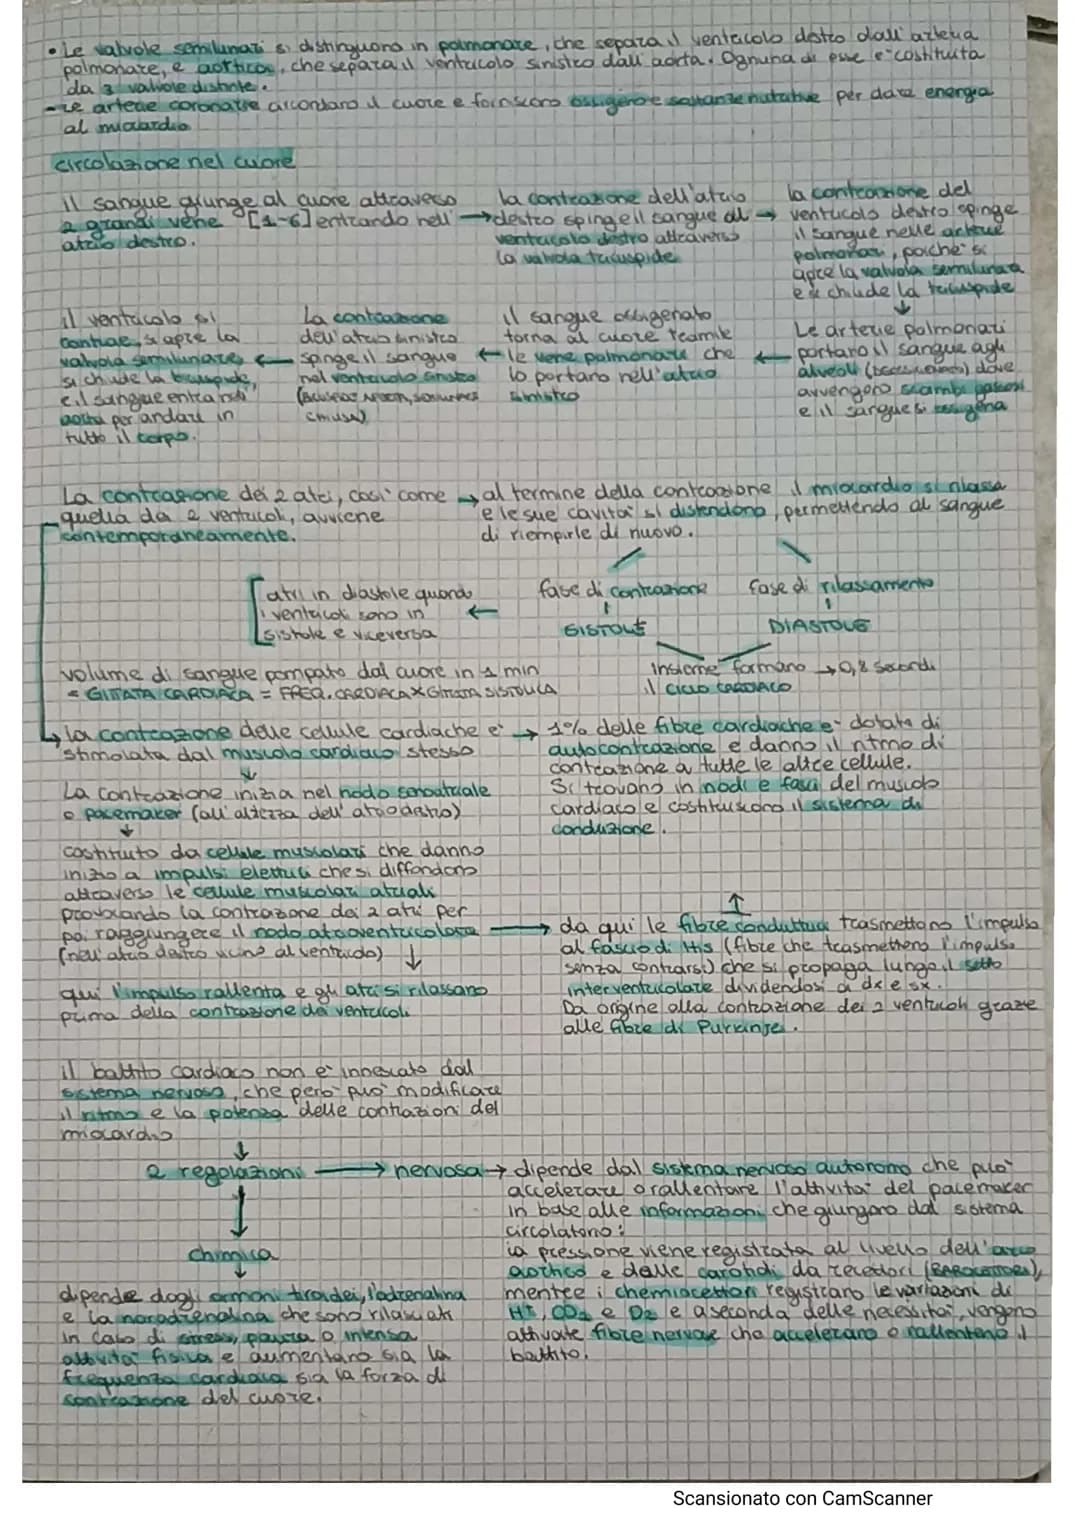 • Le valvole semilunari si distinguono in polmonare, che separa il ventricolo destro dall'arteria
polmonare, e aortica, che separa il ventricolo sinistro dall'aorta. Ognuna di esse e' costituita
da 3 valvole distinte.
- Le arterie coronarie circondano il cuore e forniscono ossigeno e sostanze nutritive per dare energia
al miocardio
circolazione nel cuore
il sangue giunge al cuore attraverso
2 grandi vene [1-6] entrando nell' →
atrio destro.
la contrazione dell'atrio
destro spinge il sangue al →
ventricolo destro attraverso
la valvola tricuspide
la contrazione del
ventricolo destro spinge
il sangue nelle arterie
polmonari, poiche' si
apre la valvola semilunare
e si chiude la tricuspide
↓
Le arterie polmonari
portano il sangue agli
alveoli dove
avvengono scambi gassosi
e il sangue si ossigena
←
il sangue ossigenato
torna al cuore tramite
← le vene polmonari che
lo portano nell'atrio
sinistro
La contrazione
dell'atrio sinistro
← spinge il sangue
nel ventricolo sinistro
chiusa)
il ventricolo si
contrae, si apre la
valvola semilunare,
si chiude la bicuspide,
e il sangue entra nell'
aorta per andare in
tutto il corpo.
La contrazione dei 2 atri, cosi' come
quella dei 2 ventricoli, avviene
contemporaneamente.
→ al termine della contrazione il miocardio si rilassa
e le sue cavita' si distendono, permettendo al sangue
di riempirle di nuovo.
fase di contrazione
↑
SISTOLE
fase di rilassamento
↑
DIASTOLE
←
atri in diastole quando
i ventricoli sono in
sistole e viceversa
Insieme formano → 0,8 secondi
il CICLO CARDIACO
volume di sangue pompato dal cuore in 1 min
= GITTATA CARDIACA = FREQ. CARDIACA X GITTATA SISTOLICA
la contrazione delle cellule cardiache e' →
stimolata dal muscolo cardiaco stesso
↓
La contrazione inizia nel nodo senoatriale
o pacemaker (all'altezza dell'atrio destro)
↓
costituito da cellule muscolari che danno
inizio a impulsi elettrici che si diffondono
attraverso le cellule muscolari atriali
provocando la contrazione dei 2 atri per
poi raggiungere il nodo atrioventricolare →
(nell'atrio destro vicino al ventricolo) ↓
qui l'impulso rallenta e gli atri si rilassano
prima della contrazione dei ventricoli
1% delle fibre cardiache e' dotata di
autocontrazione e danno il ritmo di
contrazione a tutte le altre cellule.
Si trovano in nodi e fasci del muscolo
cardiaco e costituiscono il sistema di
conduzione.
↑
da qui le fibre conduttrici trasmettono l'impulso
al fascio di His (fibre che trasmettono l'impulso
senza contrarsi) che si propaga lungo il setto
interventricolare dividendosi a dx e sx.
Da origine alla contrazione dei 2 ventricoli grazie
alle fibre di Purkinje.
il battito cardiaco non e' innescato dal
sistema nervoso, che pero' puo' modificare
il ritmo e la potenza delle contrazioni del
miocardio
↓
2 regolazioni → nervosa → dipende dal sistema nervoso autonomo che puo'
accelerare o rallentare l'attivita' del pacemaker
in base alle informazioni che giungono dal sistema
circolatorio:
la pressione viene registrata al livello dell'arco
aortico e delle carotidi da recettori (BAROCETTORI),
mentre i chemiocettori registrano le variazioni di
H+, CO2 e O2 e a seconda delle necessita', vengono
attivate fibre nervose che accelerano o rallentano il
battito.
↓
chimica
↓
dipende dagli ormoni tiroidei, l'adrenalina
e la noradrenalina che sono rilasciati
in caso di stress, paura o intensa
attivita' fisica e aumentano sia la
frequenza cardiaca sia la forza di
contrazione del cuore.
Scansionato con CamScanner